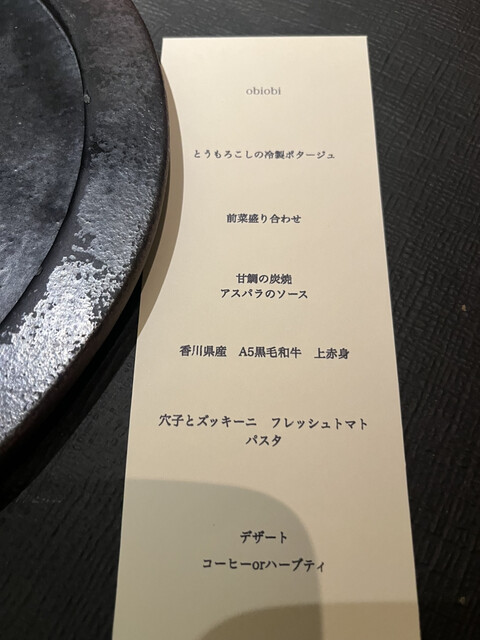 obiobi
とうもろこしの冷製ポタージュ
前菜盛り合わせ
甘鯛の炭焼
アスパラのソース
香川県産　A5黒毛和牛　上赤身
穴子とズッキーニ　フレッシュトマト
パスタ
デザート
コーヒーorハーブティ